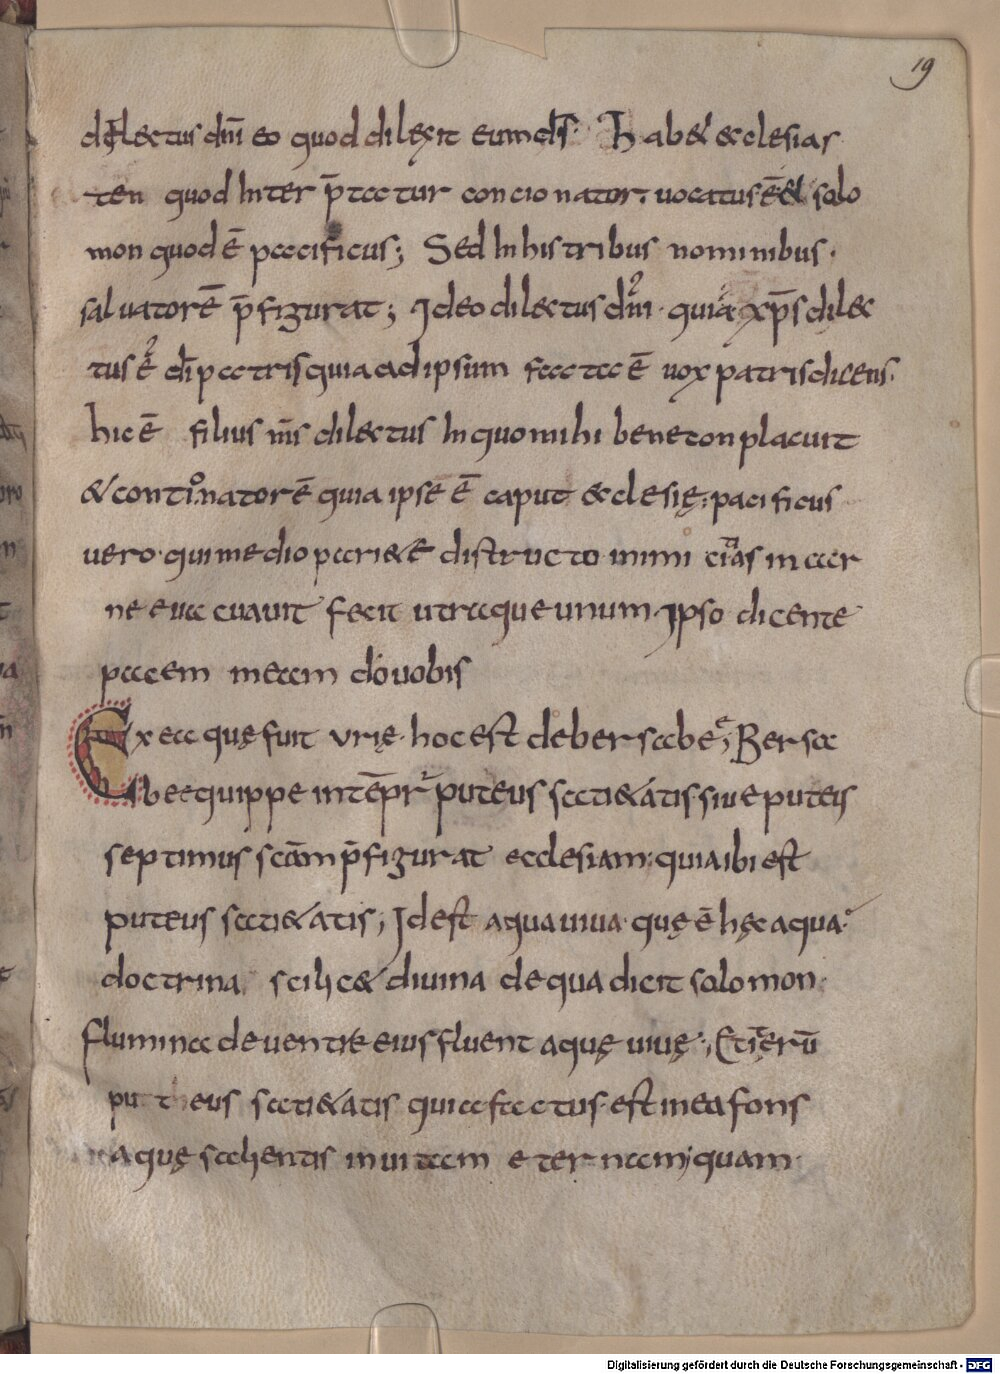 19
dilectus dn̄i eo quod dilexit eum ds̄ Habet ecclesias
ten quod Inter p̄tatur concionator. uocatus ē et solo
mon quod ē pacificus; Sed In his tribus nominibus.
saluatorē p̄figurat; Ideo dilectus dn̄i. quia xp̄s dilec
tus ē dī patris quia ad ipsum facta ē uox patris dicens.
hic ē filius m̄s dilectus In quo mihi bene conplacuit
& contionatorē quia ipse ē caput ecclesię; pacificus
uero. qui medio pariete distructo inimicitias in car
ne euacuauit fecit utraque unum. Ipso dicente
pacem meam do uobis
Ex ea quę fuit urię. hoc est de bersabee; Bersa
bee quippe intēpr̄ puteus satietatis. siue puteus
septimus scām p̄figurat ecclesiam; quia ibi est
puteus satietatis; Id est aqua uiua. quę ē hęc aqua.
doctrina scilicet diuina de qua dicit solomon.
flumina de uentre eius fluent aquę uiuę; Et iterū
putheus satietatis qui a factus est in ea fons
aquę salientis in uitam eternam; quam
Digitalisierung gefördert durch die Deutsche Forschungsgemeinschaft - DFG